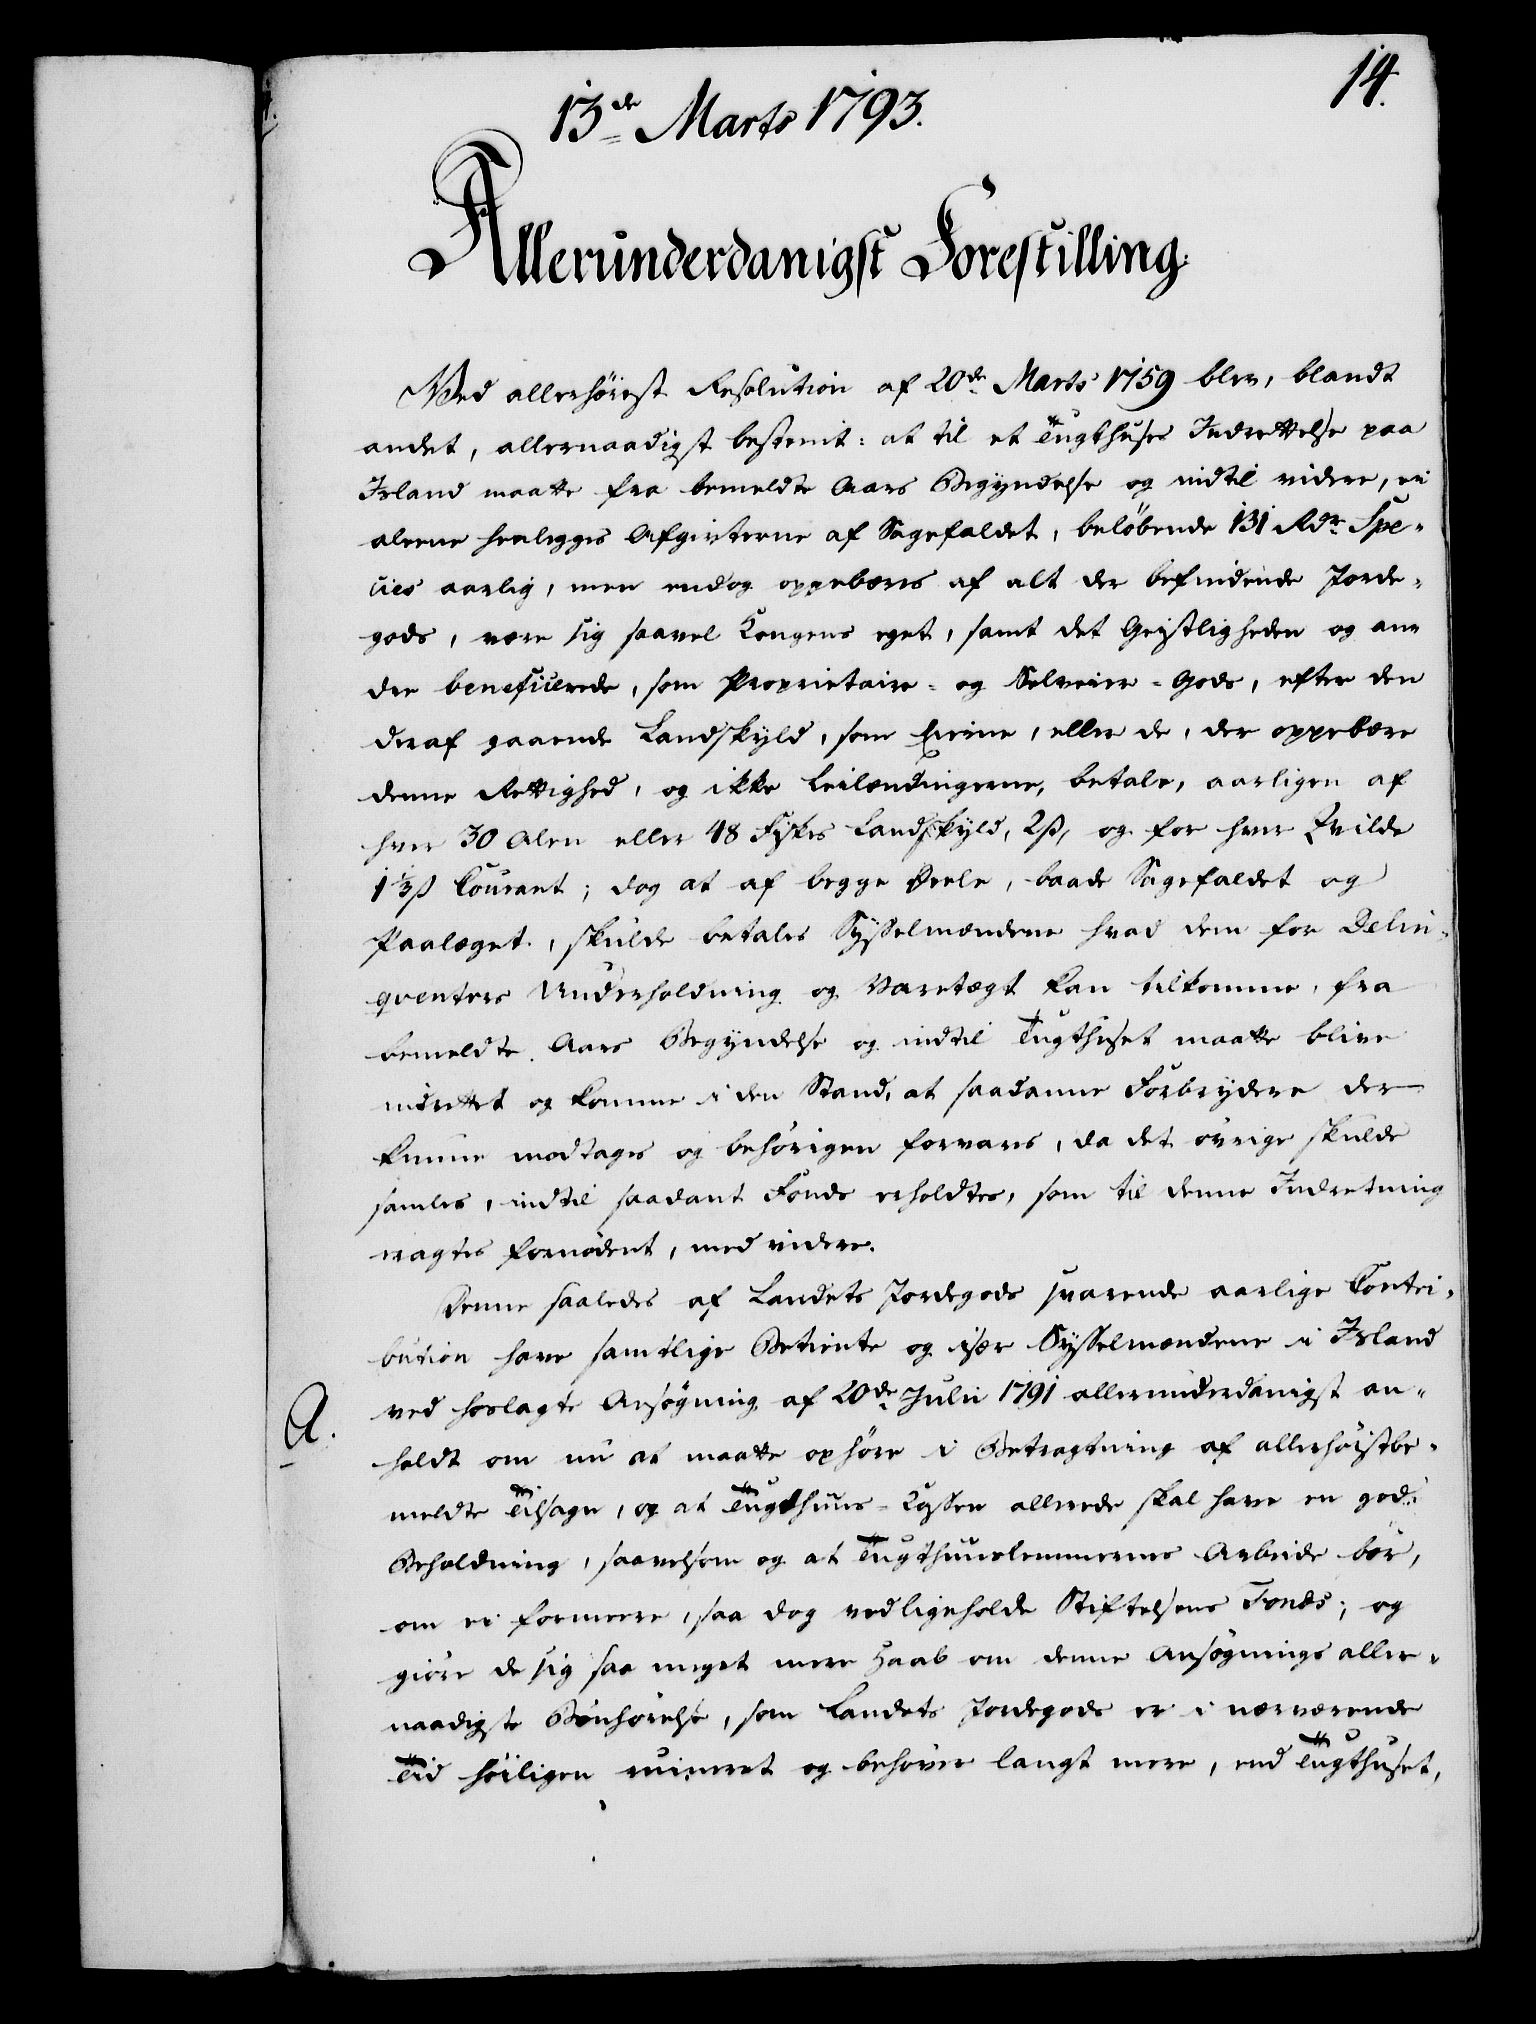 14.
13de Marts 1793.
Allerunderdanigst Forestilling.
Ved allerhöiest Resolution af 20de Marts 1759 blev, blandt
andet, allernaadigst bestemt: at til et Tugthuses Indrettelse paa
Island maatte fra bemeldte Aars Begyndelse og indtil videre, ei
alene henlegges Afgivterne af Sagefaldet, belöbende 131 Rdr Spe-
cies aarlig, men endog oppebæres af alt der befindende Jorde-
gods, være sig saavel Kongens eget, samt det Geistligheden og an-
dre beneficerede, som Proprietaire- og Selveier-Gods, efter den
deraf gaaende Landskyld, som Eierne, eller de, der oppebære
denne Rettighed, og ikke Leilændingerne, betale, aarligen af
hver 30 Alen eller 48 Fiskes Landskyld, 2ß, og for hver Qvilde
1⅓ß Courant; dog at af begge Deele, baade Sagefaldet og
Paalæget, skulde betales Sysselmændene hvad dem for Delin-
qventers Underholdning og Varetægt kan tilkomme, fra
bemeldte Aars Begyndelse og indtil Tugthuset maatte blive
indrettet og komme i den Stand, at saadanne Forbrydere der
kunne modtages og behörigen forvares, da det övrige skulde
samles, indtil saadant Fonds erholdtes, som til denne Indretning
eragtes fornödent, med videre.
Denne saaledes af Landets Jordegods svarende aarlige Contri-
bution have samtlige Betiente og især Sysselmændene i Island
A.
ved hoslagte Ansögning af 20de Julii 1791 allerunderdanigst an-
holdt om nu at maatte ophöre i Betragtning af allerhöistbe-
meldte Tilsagn, og at Tugthuus-Cassen allerede skal have en god
Beholdning, saavelsom og at Tugthuuslemmernes Arbeide bör,
om ei formeere, saa dog vedligeholde Stiftelsens Fonds; og
giöre de sig saa meget mere Haab om denne Ansögnings aller-
naadigste Bönhörelse, som Landets Jordegods er i nærværende
Tid höiligen ruineret og behöver langt mere, end Tugthuset,